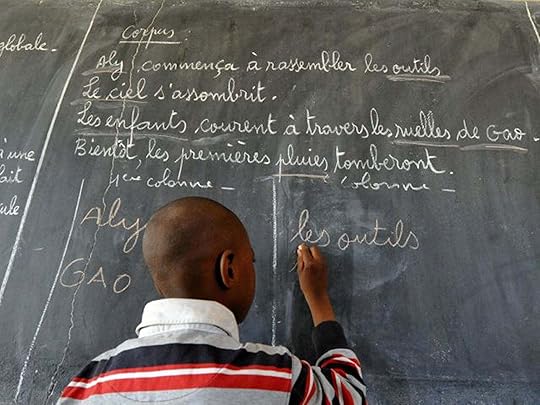 globale.
Corpus
Aly, commença à rassembler les outils
Le ciel s'assombrit.
Les enfants, courent à travers les ruelles de Gao.
Bientôt, les premières pluies tomberont.
à une
ait
cule
colonne
colonne
Aly
les outils
GAO